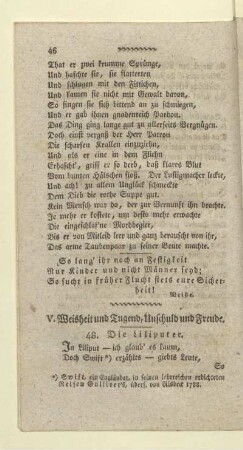 46
That er zwei krumme Sprünge,
Und haschte sie, sie flatterten
Und schlugen mit den Fittichen,
Und kamen sie nicht mit Gewalt davon,
So fingen sie sich bittend an zu schmiegen,
Und er gab ihnen gnadenreich Pardon.
Das Ding ging lange gut zu allerseits Vergnügen.
Doch einst vergaß der Herr Patron
Die scharfen Krallen einzuziehn,
Und als er eine in dem Fliehn
Erhascht', griff er so derb, daß klares Blut
Vom bunten Hälschen floß. Der Lustigmacher leckte,
Und ach! zu allem Unglück schmeckte
Dem Dieb die rothe Suppe gut.
Kein Mensch war da, der zur Vernunft ihn brachte.
Je mehr er kostete, um desto mehr erwachte
Die eingeschlaf'ne Mordbegier,
Bis er von Mitleid leer und ganz berauscht von ihr,
Das arme Taubenpaar zu seiner Beute machte.
So lang' ihr noch an Festigkeit
Nur Kinder und nicht Männer seyd;
So sucht in früher Flucht stets eure Sicher-
heit!
Weiße.
V. Weisheit und Tugend, Unschuld und Freude.
48. Die Liliputer.
In Liliput — ich glaub' es kaum,
Doch Swift *) erzählts — giebts Leute,
So
*) Swift, ein Engländer, in seinen lehrreichen erdichteten
Reisen Gullivers, übers. von Risbeck 1788.